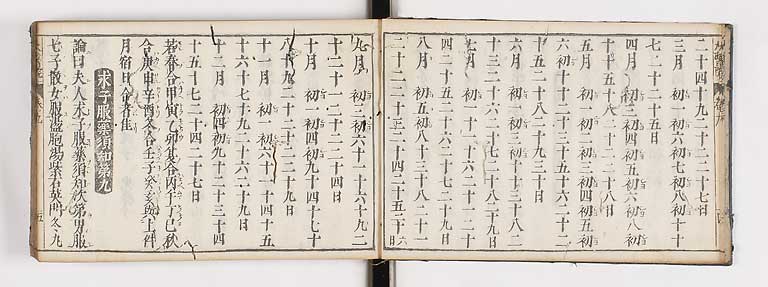 二十四十九二十二二十七日
三月 初一初六初七初八初十十
七二十二十五日
四月 初三初四初五初六初八初
十十五十八二十二二十八日
五月 初一初二初三初四初五初
六初十十二十三十五十六二十二
十五二十八二十九三十日
六月 初一初三初十十三十八二
十三二十六二十七二十八二十九日
七月 初一十一十六二十一二十
四二十五二十六二十七二十九日
八月 初五初八十三十八二十一
二十二二十三二十四二十五二十六日
九月 初三初六十一十六十九二
十二十一二十二二十四日
十月 初一初四初九十四十七十
八十九二十二十二二十九日
十一月 初一初六十一十四十五
十六十七十九二十六二十九日
十二月 初四初九十二十三十四
十五十七二十四二十七日
若春合甲寅乙卯夏合丙午丁巳秋
合庚申辛酉冬合壬子癸亥與上件
月宿日合者佳
求子服藥須知第九
論曰夫人求子服藥須知次第男服
七子散女服盪胞湯紫石英門冬丸